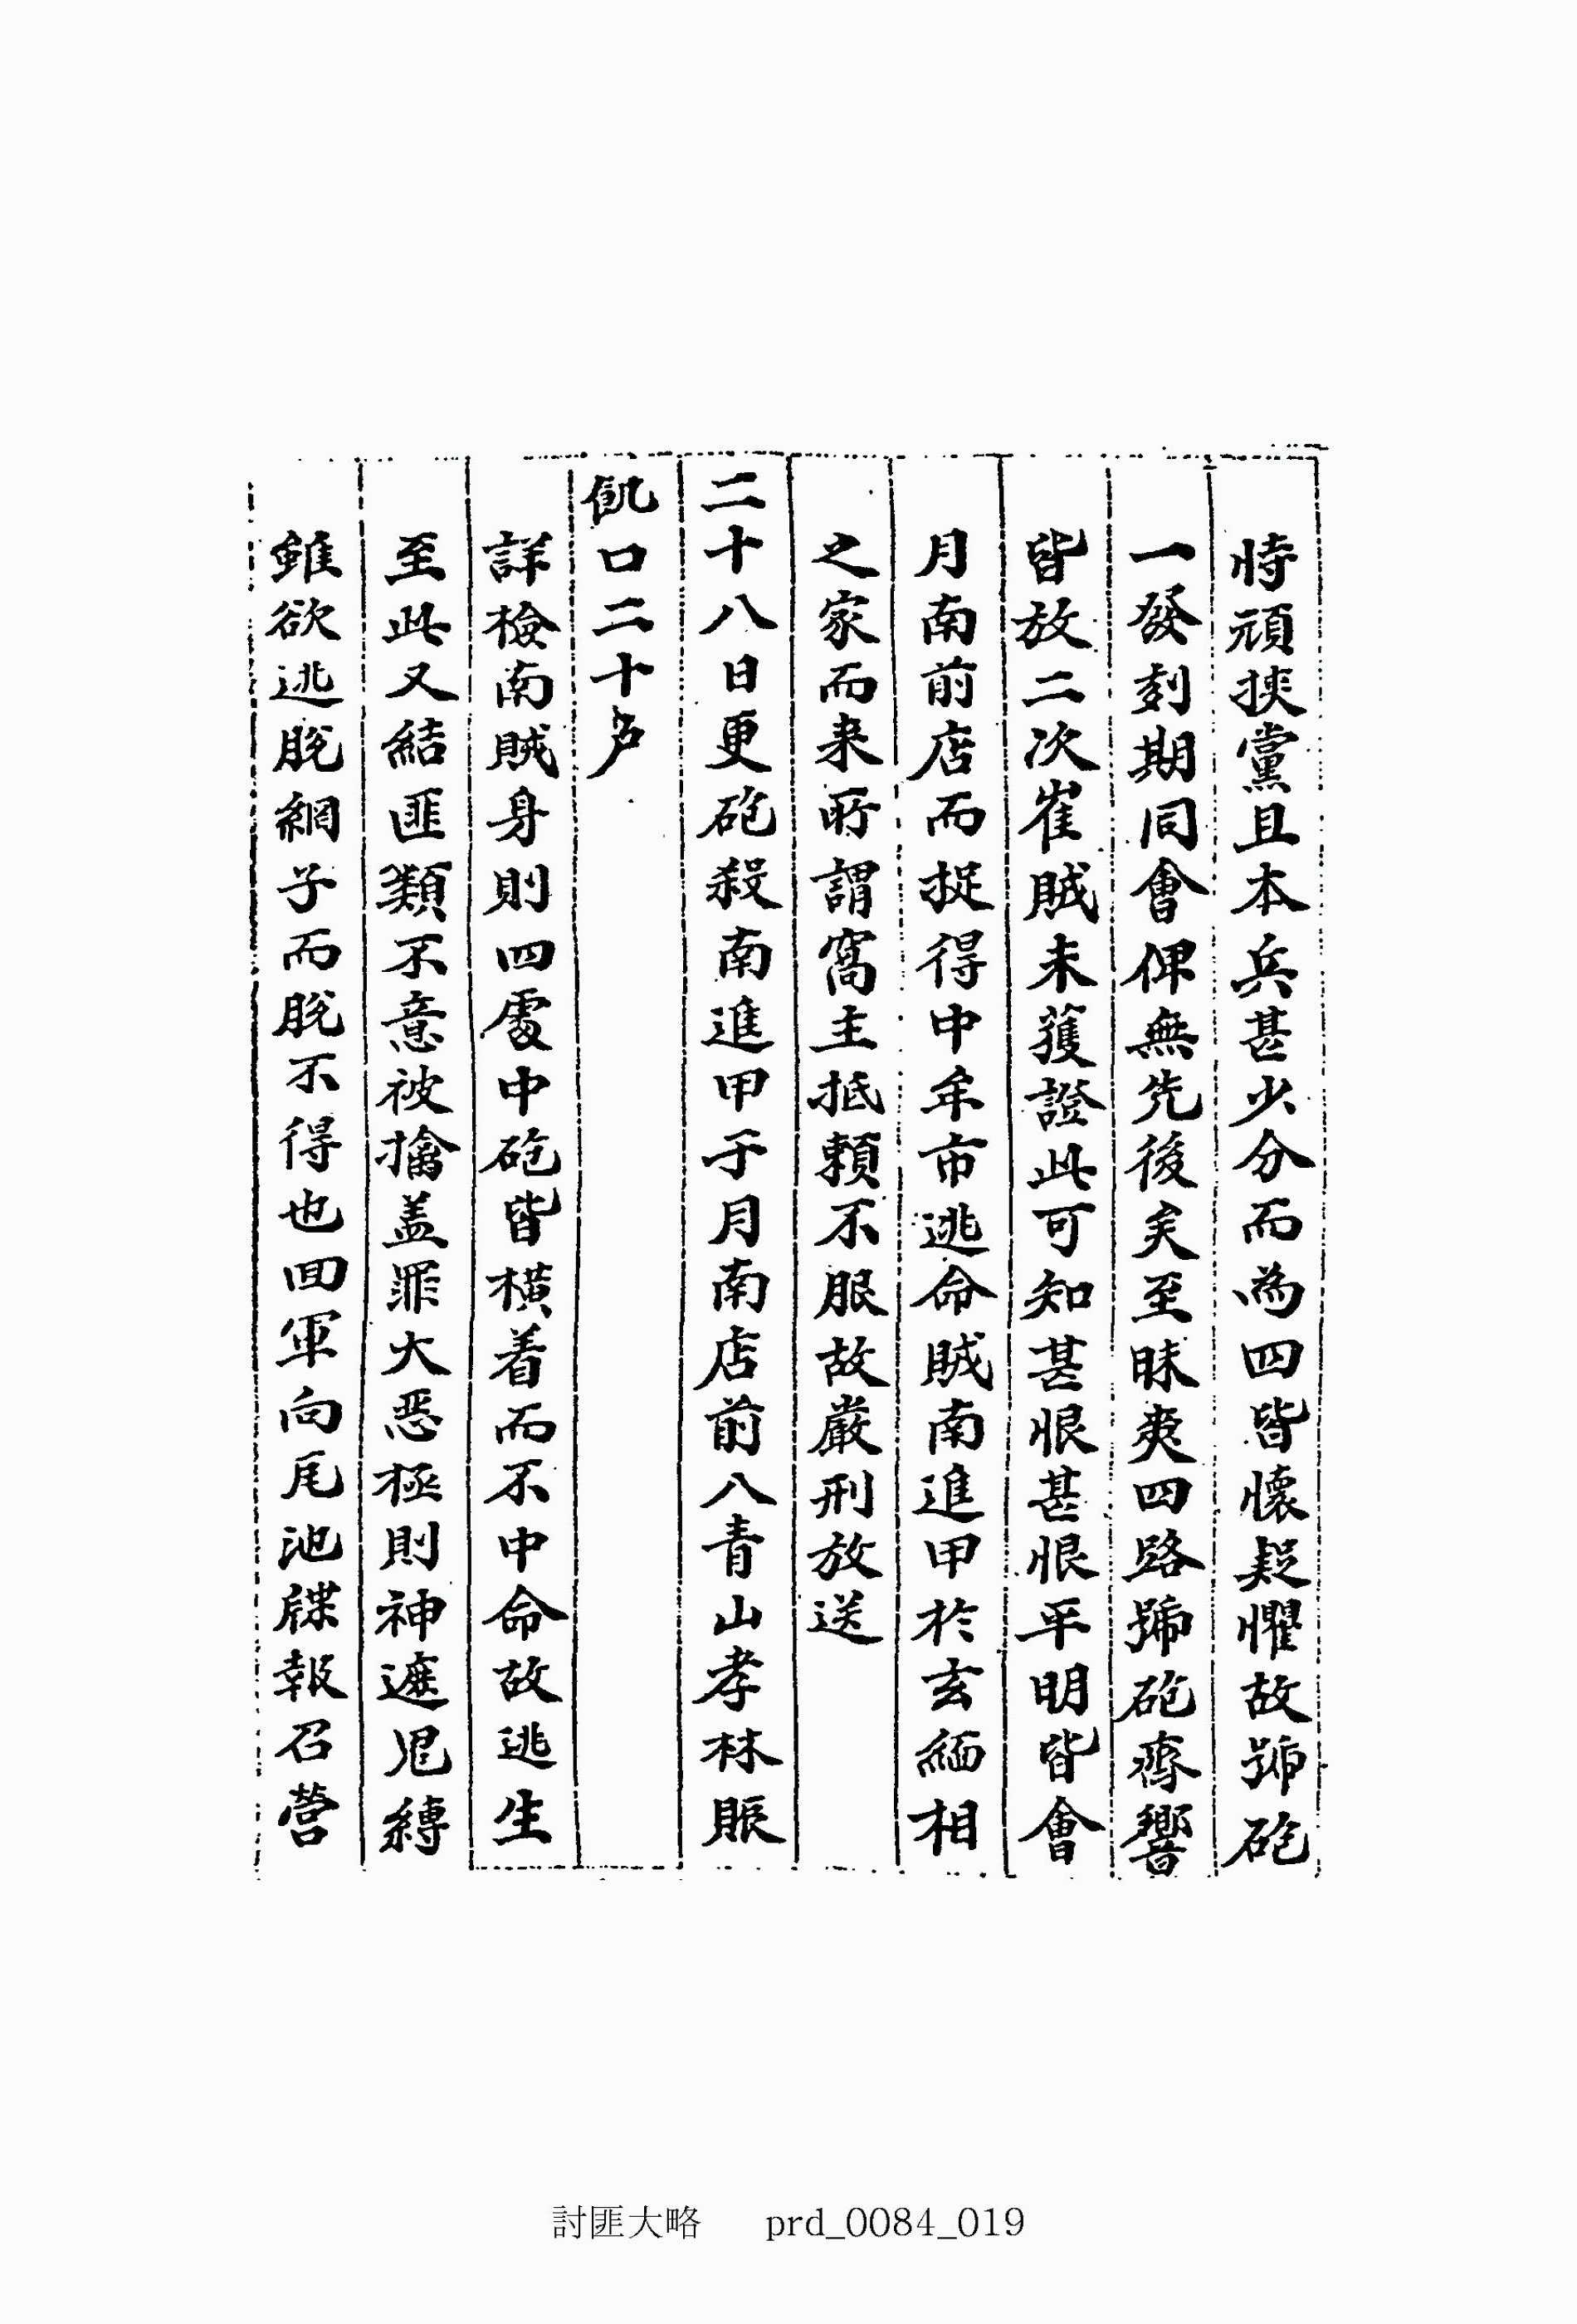 恃頑挾黨且本兵甚少分而為四皆懷疑懼故號砲
一發刻期同會俾無先後矣至昧爽四路號砲齊響
皆放二次崔賊未獲證此可知甚恨甚恨平明皆會
月南前店而捉得中年市逃命賊南進甲於玄緬相
之家而来所謂窩主抵賴不服故嚴刑放送
二十八日更砲殺南進甲于月南店前八青山孝林賑
飢口二十戶
詳檢南賊身則四處中砲皆橫着而不中命故逃生
至此又結匪類不意被擒盖罪大恶極則神遮鬼縛
雖欲逃脫網子而脫不得也回軍向尾池牒報召營
討匪大略 prd_0084_019